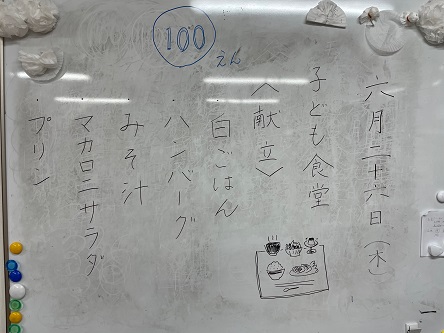 六月二十六日(木)
子ども食堂
〈献立〉
・白ごはん
・ハンバーグ
・みそ汁
・マカロニサラダ
・プリン
100
えん